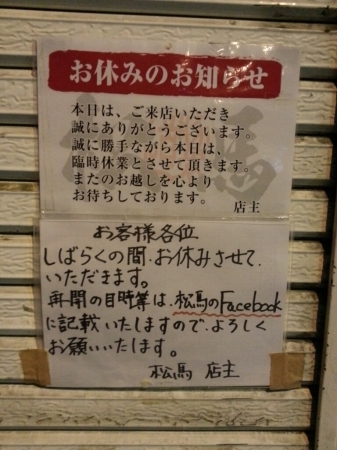 お休みのお知らせ
本日は、ご来店いただき
誠にありがとうございます。
誠に勝手ながら本日は、
臨時休業とさせて頂きます。
またのお越しを心より
お待ちしております。
店主
お客様各位
しばらくの間、お休みさせて
いただきます。
再開の日時等は、松馬のFacebook
に記載いたしますので、よろしく
お願いいたします。
松馬 店主